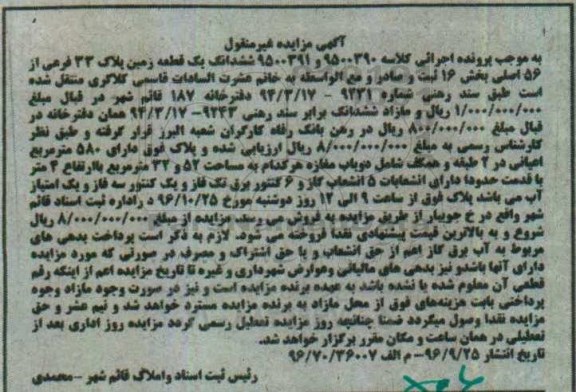 آگهی مزایده غیرمنقول
به موجب پرونده اجرائی کلاسه ۹۵۰۰۳۹۰ و ۹۵۰۰۳۹۱ ششدانگ یک قطعه زمین پلاک ۳۳ فرعی از
۵۶ اصلی بخش ۱۶ ثبت و صادر و مع الواسطه به خانم عشرت السادات قاسمی کلاگری منتقل شده
است طبق سند رهنی شماره ۹۲۳۱ - ۹۴/۳/۱۷ دفترخانه ۱۸۷ قائم شهر در قبال مبلغ
۱/۰۰۰/۰۰۰/۰۰۰ ریال و مازاد ششدانگ برابر سند رهنی ۹۲۴۳- ۹۴/۳/۱۷ همان دفترخانه در
قبال مبلغ ۸۰۰/۰۰۰/۰۰۰ ریال در رهن بانک رفاه کارگران شعبه البرز قرار گرفته و طبق نظر
کارشناس رسمی به مبلغ ۸/۰۰۰/۰۰۰/۰۰۰ ریال ارزیابی شده و پلاک فوق دارای ۵۸۰ مترمربع
اعیانی در ۲ طبقه و همکف شامل دوباب مغازه هرکدام به مساحت ۵۲ و ۳۲ مترمربع باارتفاع ۴ متر
با قدمت حدودا دارای انشعابات ۵ انشعاب گاز و ۶ کنتور برق تک فاز و یک کنتور سه فاز و یک امتیاز
آب می باشد پلاک فوق از ساعت ۹ الی ۱۲ روز دوشنبه مورخ ۹۶/۱۰/۲۵ د راداره ثبت اسناد قائم
شهر واقع در خ جویبار از طریق مزایده به فروش می رسد. مزایده از مبلغ ۸/۰۰۰/۰۰۰/۰۰۰ ریال
شروع و به بالاترین قیمت پیشنهادی نقدا فروخته می شود. لازم به ذکر است پرداخت بدهی های
مربوط به آب برق گاز اعم از حق انشعاب و یا حق اشتراک و مصرف در صورتی که مورد مزایده
دارای آنها باشدو نیز بدهی های مالیاتی وعوارض شهرداری و غیره تا تاریخ مزایده اعم از اینکه رقم
قطعی آن معلوم شده یا نشده باشد به عهده برنده مزایده است و نیز در صورت وجود مازاد وجوه
پرداختی بابت هزینه‌های فوق از محل مازاد به برنده مزایده مسترد خواهد شد و نیم عشر و حق
مزایده نقدا وصول میگردد ضمنا چنانچه روز مزایده تعطیل رسمی گردد مزایده روز اداری بعد از
تعطیلی در همان ساعت و مکان مقرر برگزار خواهد شد.
تاریخ انتشار ۹۶/۹/۲۵- م الف ۹۶/۷۰/۳۶۰۰۷
رئیس ثبت اسناد واملاک قائم شهر –محمدی